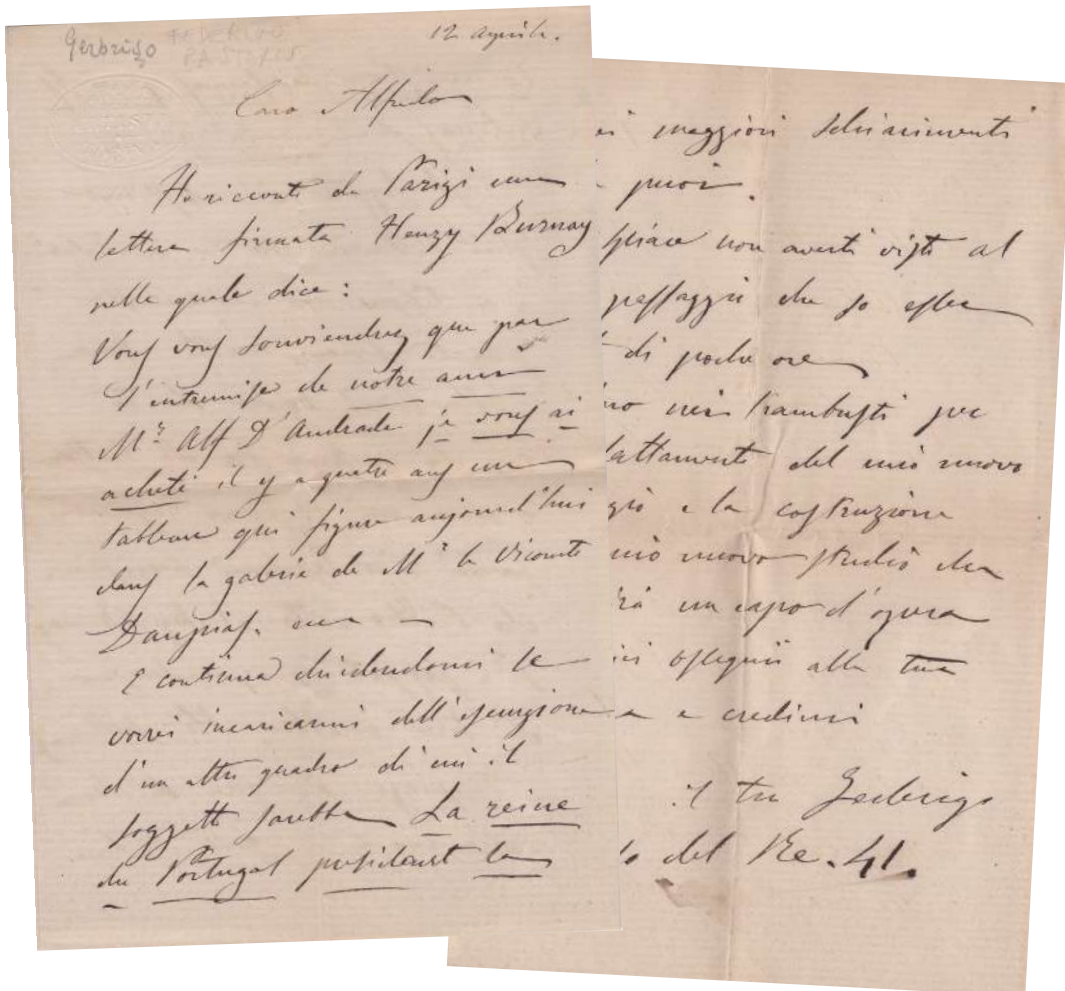 Gerbrigo FEDERIGO
PASTORIS
12 aprile.
Caro Alfredo
Ho ricevuto da Parigi una
lettera firmata Henry Burnay
nella quale dice:
Vous vous souviendrez que par
l'entremise de notre ami
Mr. Alf D'Andrade je vous ai
acheté il y a quatre ans un
tableau qui figure aujourd'hui
dans la galerie de Mr le Vicomte
Daupias.
E continua chiedendomi se
vorrei incaricarmi dell'esecuzione
d'un altro quadro di cui il
soggetto sarebbe La reine
du Portugal présidant la
maggiori schiarimenti
puoi.
spiace non averti visto al
passaggio che so essere
di poche ore
nei trambusti per
adattamento del mio nuovo
e la costruzione
mio nuovo studio che
un capo d'opera
ossequii alla tua
e credimi
il tuo Federigo
del Re. 41.